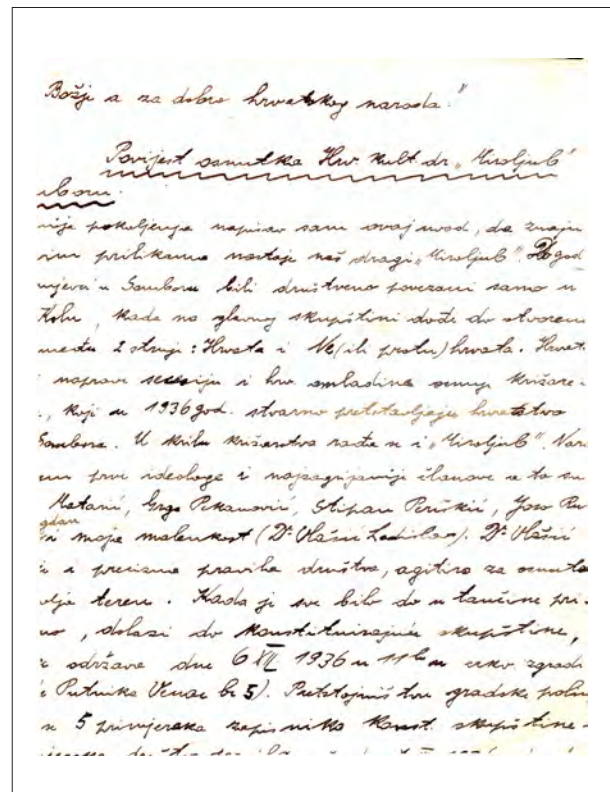 Božji a za dobro hrvatskog naroda."
Povijest osnutka Hrv. kult. dr. „Miroljub"
boru.
nije pokoljenja napisao sam ovaj uvod, da znaju
vim prilikama nastaje naš dragi „Miroljub". Do god
njevci u Somboru bili društveno povezani samo u
Kolu, kada na glavnoj skupštini dođe do otvoren
među 2 struje: Hrvata i Ne(ili protu)hrvata. Hrvat
naprave secesiju i hrv. omladina osnuje križare-
, koji u 1936 god. stvarno pretstavljaju hrvatstvo
Sombora. U krilu križarstva rađa se i „Miroljub". Nar
em prve ideologe i najzagrijanije članove a to su
Matarić, Grgo Pekanović, Stipan Periškić, Joso
gdan
i moja malenkost (Dr Vlašić Ladislav). Dr Vlašić
i precizna pravila društva, agitira za osnuta
olje teren. Kada je sve bilo do u tančine pri-
no, dolazi do konstituirajuće skupštine,
e održava dne 6 XII 1936 u 11h u crkv. zgradi
Putnika Venac br 5). Pretstojništvu gradske polic
n 5 primjeraka zapisnika konst. skupštine